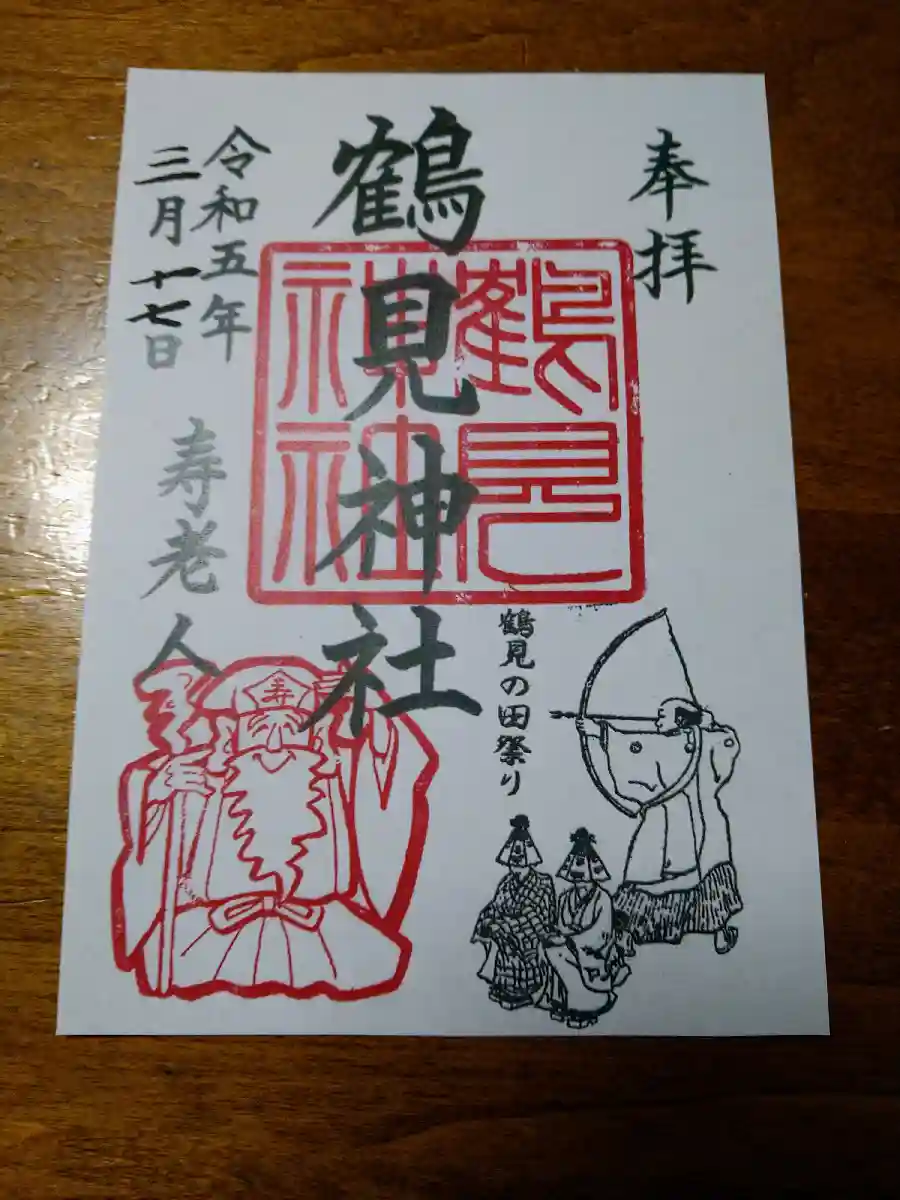 奉拝
鶴見神社
鶴見
神社
令和五年
三月十七日
寿老人
寿
鶴見の田祭り